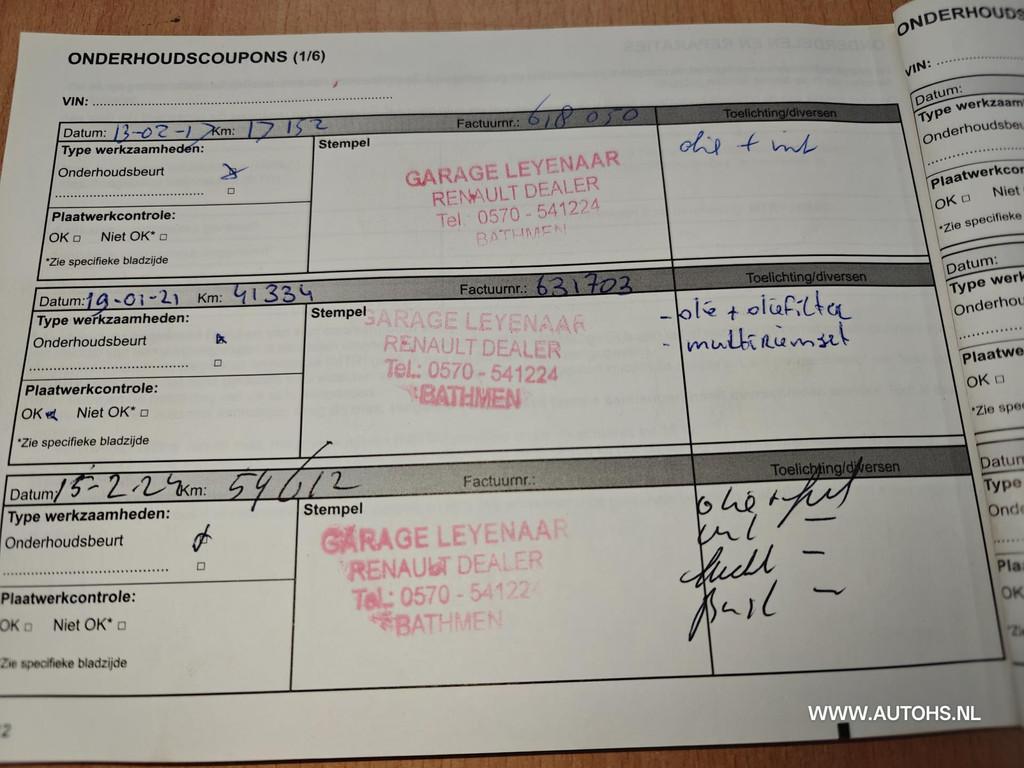 ONDERHOUDSCOUPONS (1/6)
VIN:
Datum: 13-02-17 Km: 17 152 Factuurnr.: 618 050 Toelichting/diversen
Type werkzaamheden:
Onderhoudsbeurt
Stempel
GARAGE LEYENAAR
RENAULT DEALER
Tel. 0570 - 541224
BATHMEN
olie + int
Plaatwerkcontrole:
OK □ Niet OK* □
*Zie specifieke bladzijde
Datum: 19-01-21 Km: 41334 Factuurnr.: 631703 Toelichting/diversen
Type werkzaamheden:
Onderhoudsbeurt
Stempel
GARAGE LEYENAAR
RENAULT DEALER
Tel.: 0570 - 541224
BATHMEN
- olie + oliefilter
- multiriemset
Plaatwerkcontrole:
OK Niet OK* □
*Zie specifieke bladzijde
Datum 15-2-24 Km: 54612 Factuurnr.: Toelichting/diversen
Type werkzaamheden:
Onderhoudsbeurt
Stempel
GARAGE LEYENAAR
RENAULT DEALER
Tel.: 0570 - 541224
BATHMEN
olie +
Plaatwerkcontrole:
OK □ Niet OK* □
*Zie specifieke bladzijde
2
ONDERHOUDS
VIN:
Datum:
Type werkzaam
Onderhoudsbeu
Plaatwerkcon
OK □ Niet
*Zie specifieke
Datum:
Type werk
Onderhou
Plaatwe
OK □
*Zie spe
Datum
Type
Onde
Pla
OK
*Zi
WWW.AUTOHS.NL